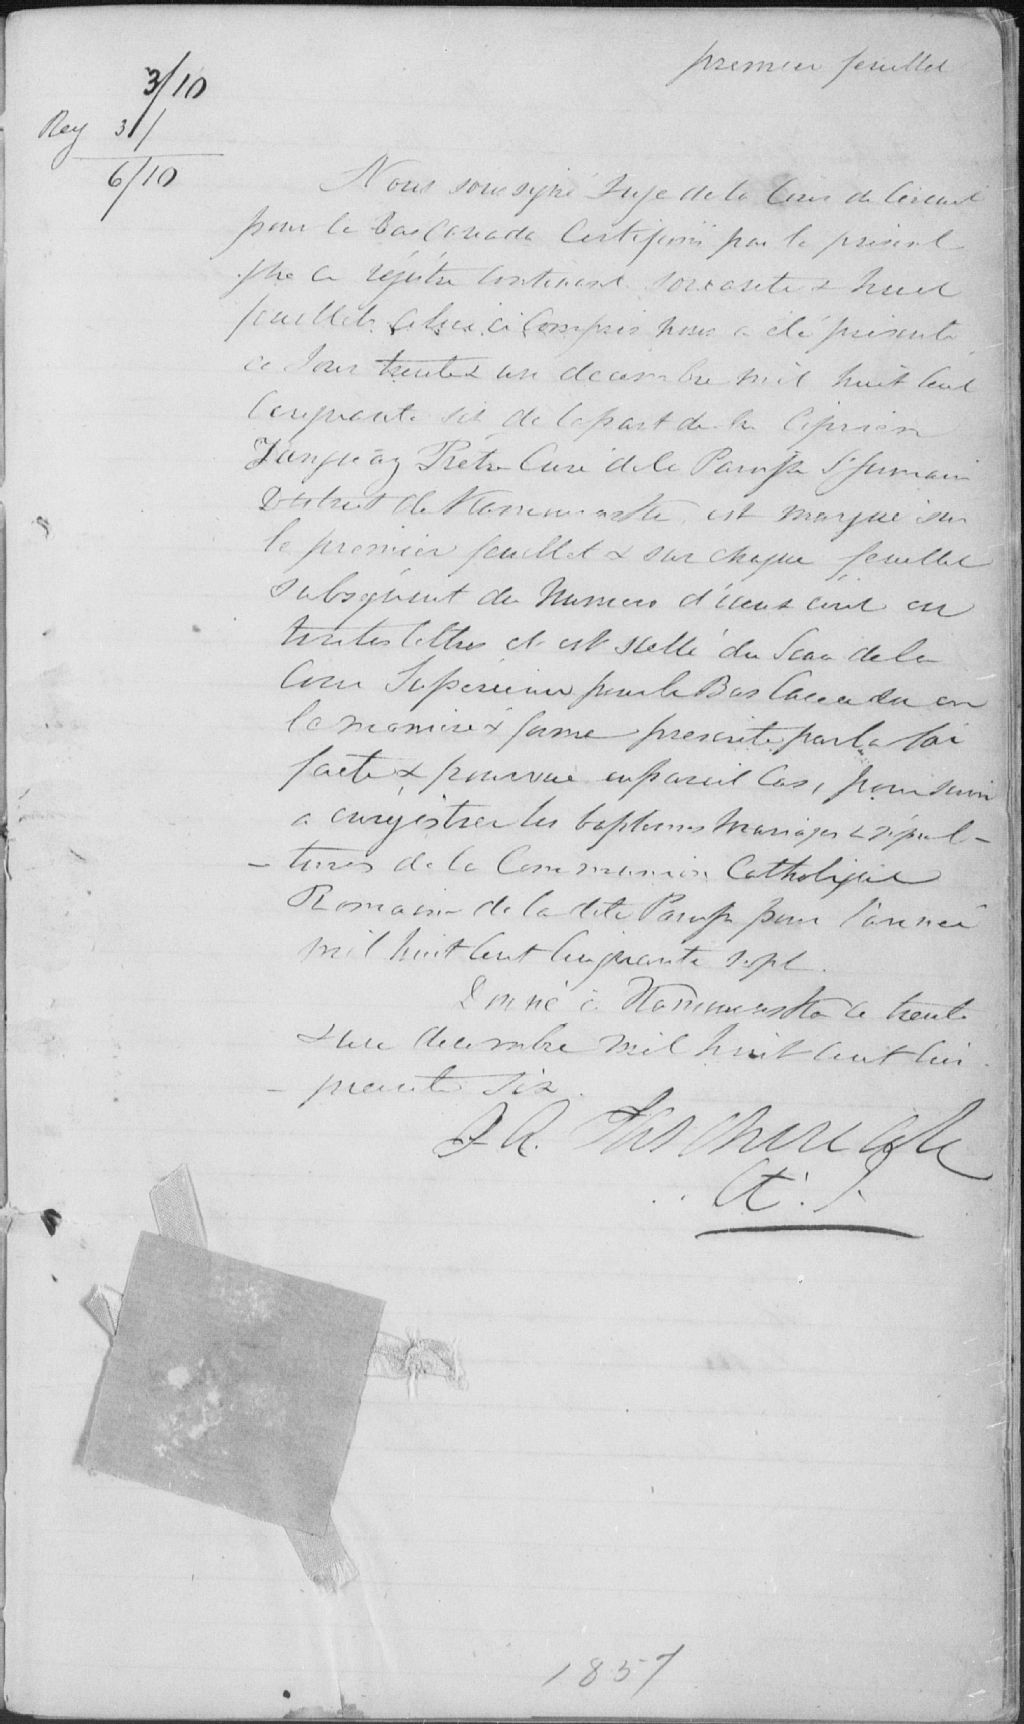 premier feuillet
3/10
Reg 3/
6/10
Nous soussigné Juge de la Cour de Circuit
pour le Bas Canada Certifions par le présent
que ce régistre contenant soixante & huit
feuillets celui ci compris nous a été présenté
ce Jour trente & un decembre mil huit Cent
Cinquante six de la part de Mr Ciprien
Tanguay Prêtre Curé de la Paroisse St Germain
District de Kamouraska est marqué sur
le premier feuillet & sur chaque feuillet
subséquent du Numero d'iceux écrit en
toutes lettres et est scellé du Sceau de la
Cour Supérieure pour le Bas Canada en
la manière & forme prescrite par la loi
faite & pourvue en pareil Cas, pour servir
a enrégistrer les baptêmes Mariages & sépul-
- tures de la Communion Catholique
Romaine de la dite Paroisse pour l'année
mil huit Cent Cinquante sept.
Donné à Kamouraska ce trente
& un decembre Mil huit Cent Cin
- quante Six.
J A. Taschereau
C. J.
1857